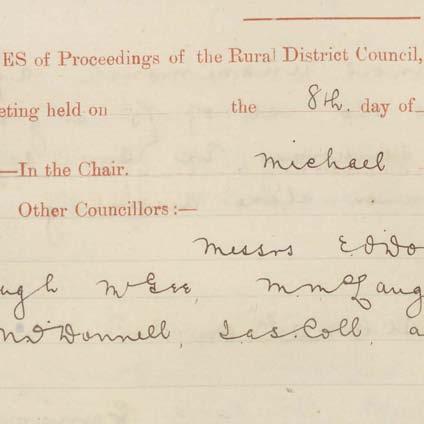 ES of Proceedings of the Rural District Council,
eting held on the 8th. day of
—In the Chair. Michael
Other Councillors :—
Messrs E. O'Do
ugh McGee, M. McLaug
McDonnell, Jas. Coll, a